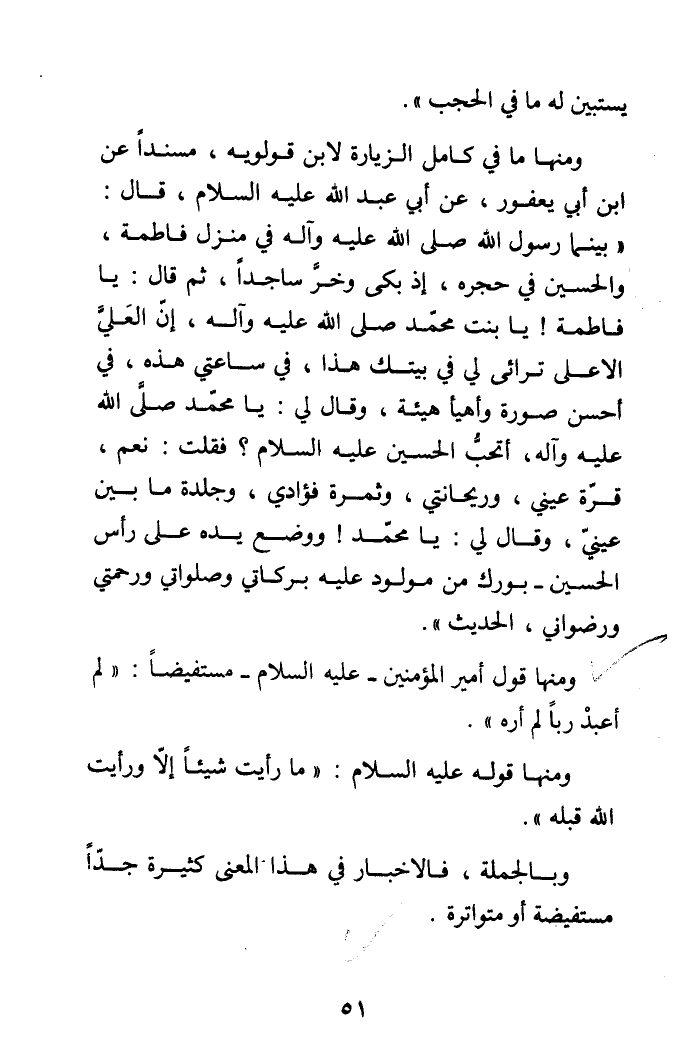 يستبين له ما في الحجب ».
ومنها ما في كامل الزيارة لابن قولويه ، مسنداً عن
ابن أبي يعفور ، عن أبي عبد الله عليه السلام ، قال :
« بينما رسول الله صلى الله عليه وآله في منزل فاطمة ،
والحسين في حجره ، إذ بكى وخرَّ ساجداً ، ثم قال : يا
فاطمة ! يا بنت محمّد صلى الله عليه وآله ، إنّ العَليَّ
الاعلى ترائى لي في بيتك هذا ، في ساعتي هذه ، في
أحسن صورة وأهيأ هيئة ، وقال لي : يا محمّد صلَّى الله
عليه وآله، أتحبُّ الحسين عليه السلام ؟ فقلت : نعم ،
قرّة عيني ، وريحانتي ، وثمرة فؤادي ، وجلدة ما بين
عينيّ ، وقال لي : يا محمّد ! ووضع يده على رأس
الحسين - بورك من مولود عليه بركاتي وصلواتي ورحمتي
ورضواني ، الحديث ».
ومنها قول أمير المؤمنين - عليه السلام - مستفيضاً : « لم
أعبدْ رباً لم أره » .
ومنها قوله عليه السلام : « ما رأيت شيئاً إلّا ورأيت
الله قبله ».
وبالجملة ، فالاخبار في هذا المعنى كثيرة جدّاً
مستفيضة أو متواترة .
٥١